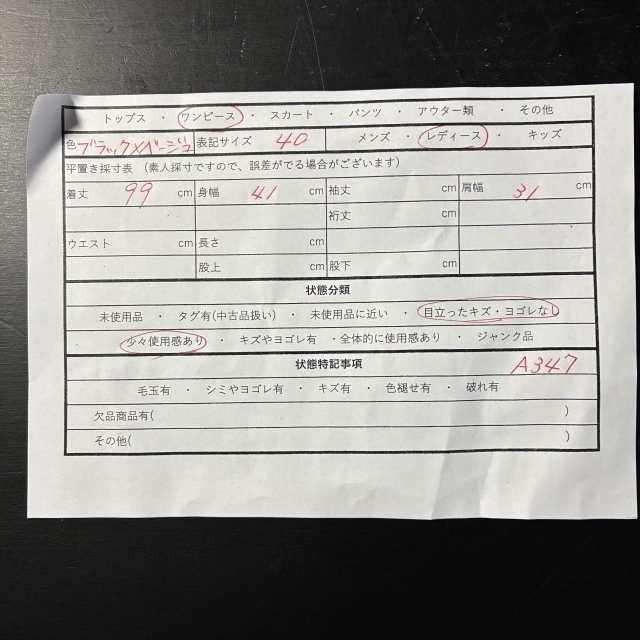 トップス ・ ワンピース ・ スカート ・ パンツ ・ アウター類 ・ その他
色 ブラック×ベージュ 表記サイズ 40 メンズ ・ レディース ・ キッズ
平置き採寸表 (素人採寸ですので、誤差がでる場合がございます)
着丈 99 cm 身幅 41 cm 袖丈 cm 肩幅 31 cm
裄丈 cm
ウエスト cm 長さ cm
股上 cm 股下 cm
状態分類
未使用品 ・ タグ有(中古品扱い) ・ 未使用品に近い ・ 目立ったキズ・ヨゴレなし
少々使用感あり ・ キズやヨゴレ有 ・全体的に使用感あり ・ ジャンク品
状態特記事項 A347
毛玉有 ・ シミやヨゴレ有 ・ キズ有 ・ 色褪せ有 ・ 破れ有
欠品商品有( )
その他( )